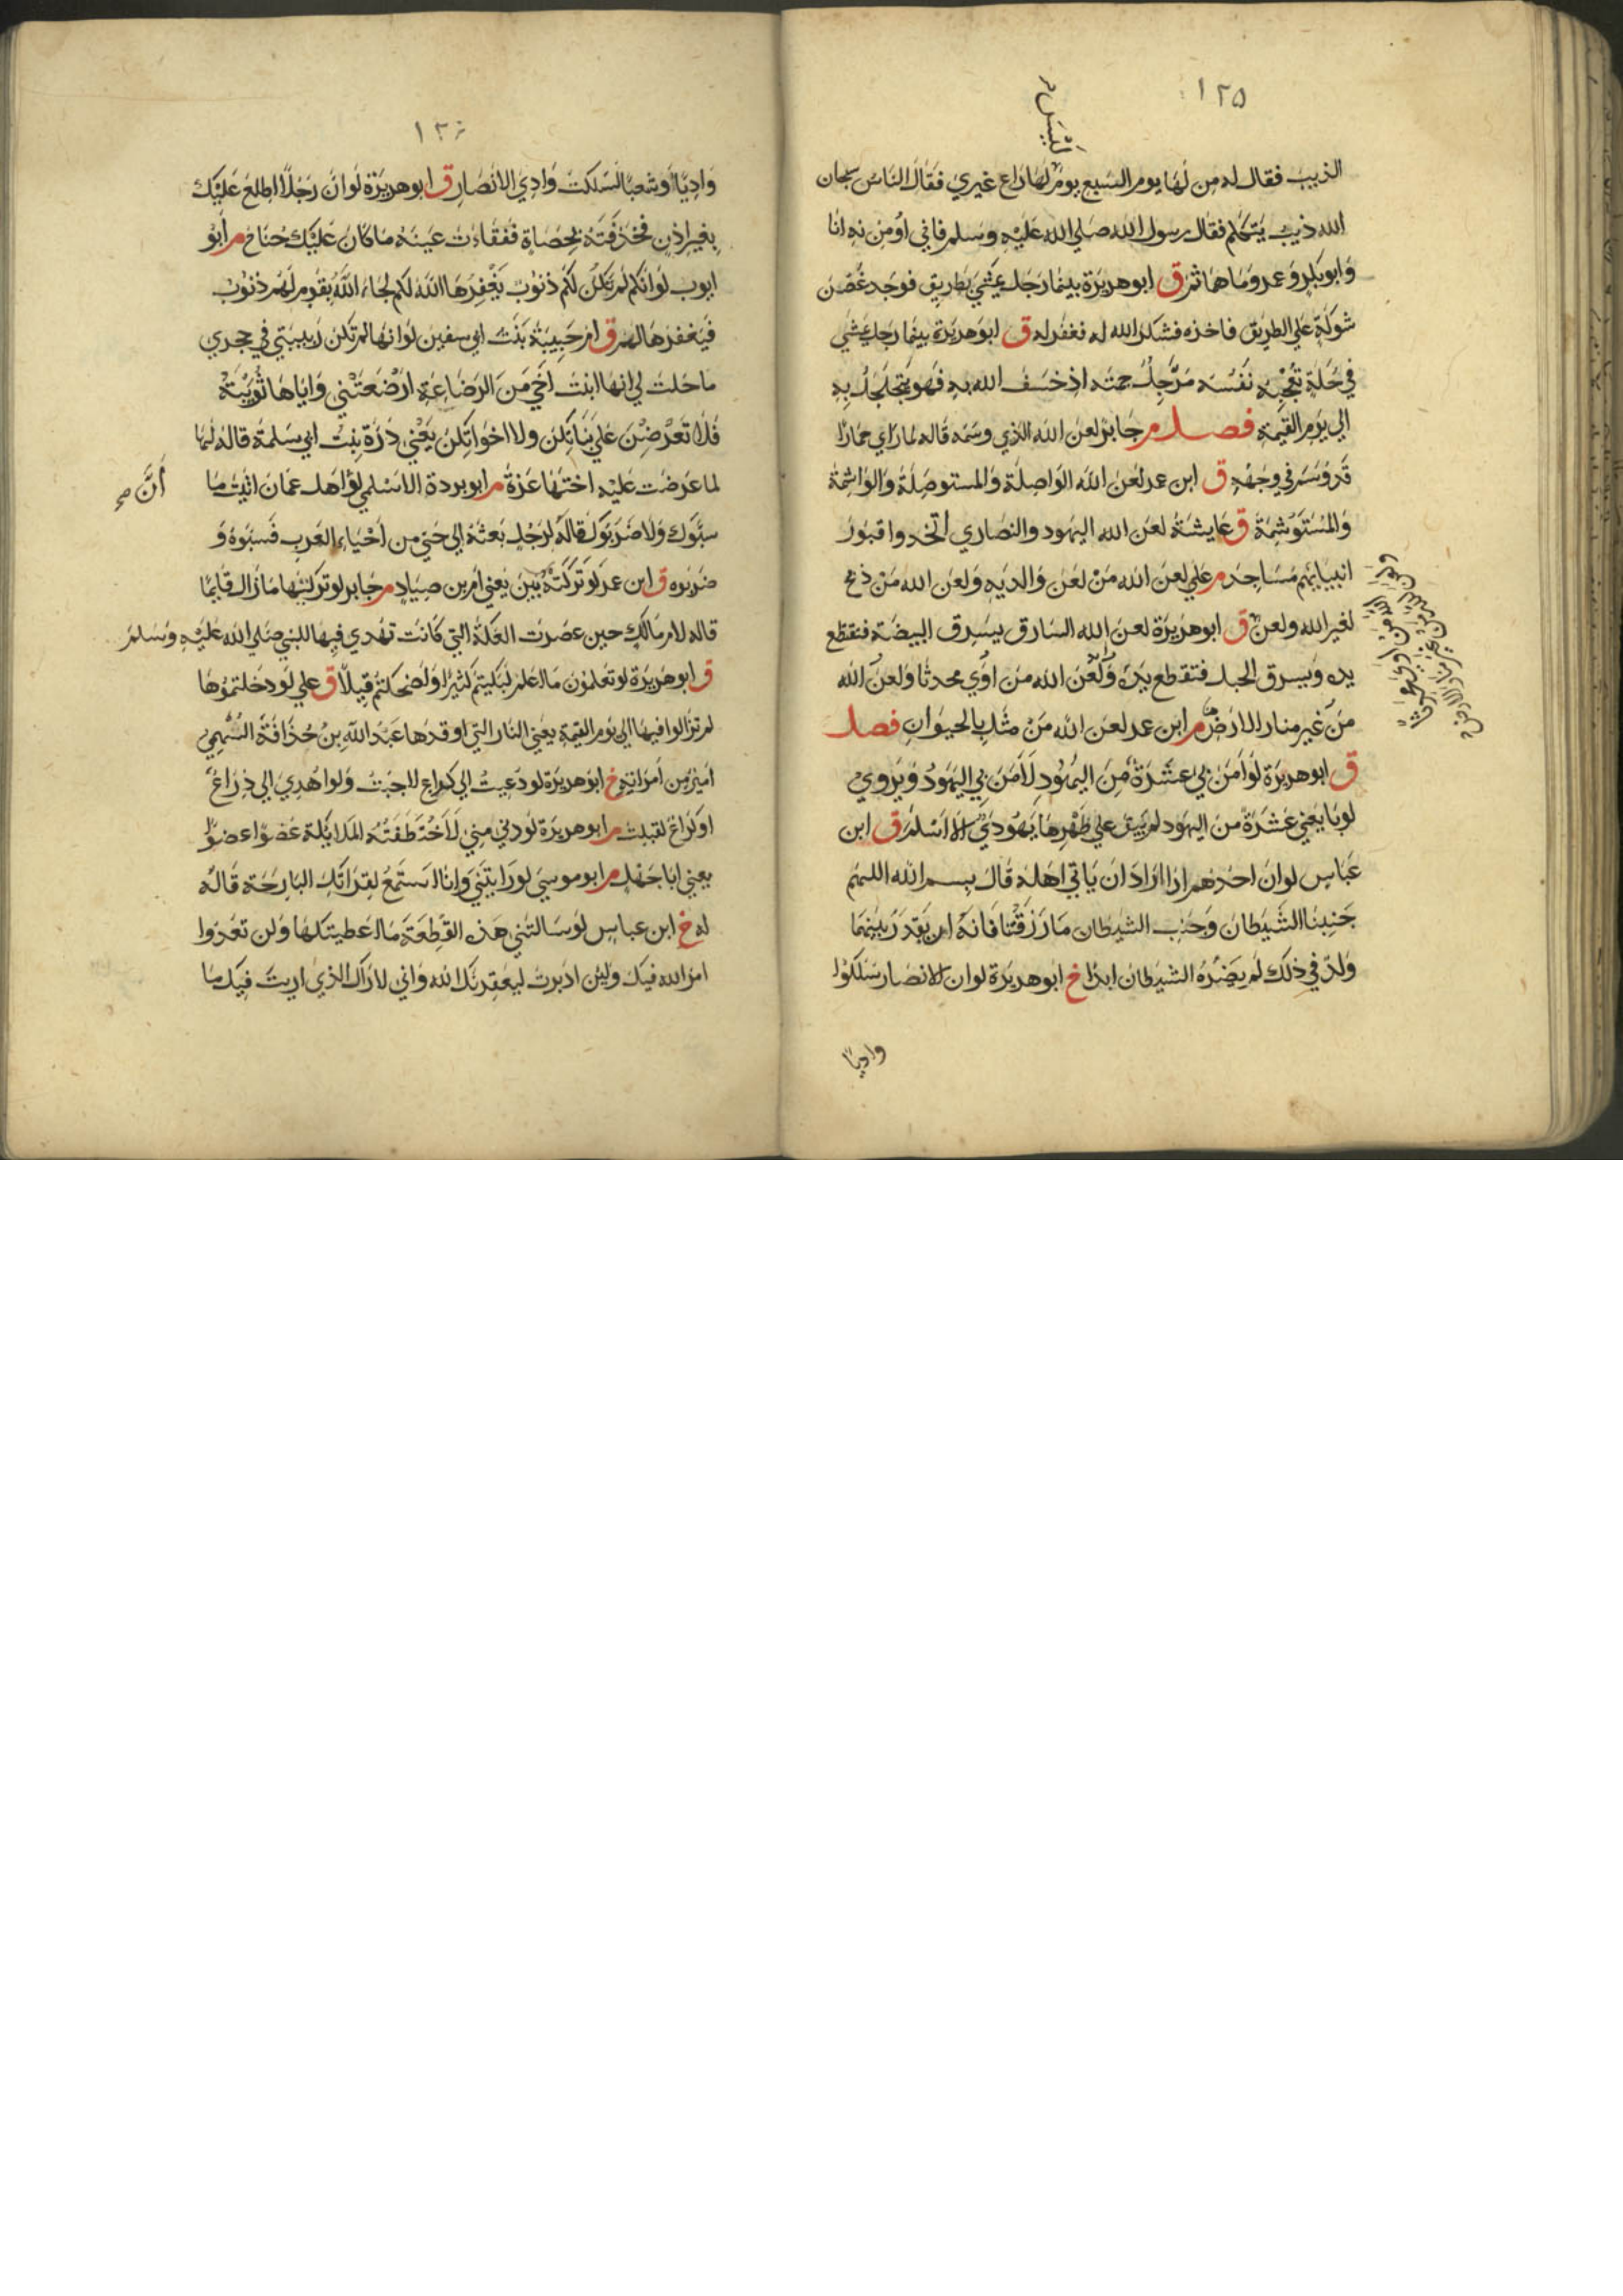 ١٢٥
ليس
الذيب فقال له من لها يوم السبع يوم لها راع غيري فقال الناس سبحان
الله ذيب يتكلم فقال رسول الله صلي الله عليه وسلم فاني اومن به انا
وابو بكر وعمر وما هما ثم ق ابو هريرة بينما رجل يمشي بطريق فوجد غصن
شوكة علي الطريق فاخذه فشكر الله له فغفر له ق ابو هريرة بينما رجل يمشي
في حلة تعجبه نفسه مرجل جمته اذ خسف الله به فهو يتجلجل به
الي يوم القيمة فصل م جابر لعن الله الذي وسمه قاله لما راي حمارا
قد وسم في وجهه ق ابن عمر لعن الله الواصلة والمستوصلة والواشمة
والمستوشمة ق عايشة لعن الله اليهود والنصاري اتخذوا قبور
انبيايهم مساجد م علي لعن الله من لعن والديه ولعن الله من ذبح
لغير الله ولعن ق ابو هريرة لعن الله السارق يسرق البيضة فتقطع
يده ويسرق الحبل فتقطع يده ولعن الله من اوي محدثا ولعن الله
من غير منار الارض م ابن عمر لعن الله من مثل بالحيوان فصل
ق ابو هريرة لو امن بي عشرة من اليهود لامن بي اليهود ويروي
لو تابعني عشرة من اليهود لم يبق علي ظهرها يهودي الا اسلم ق ابن
عباس لو ان احدهم اذا اراد ان ياتي اهله قال بسم الله اللهم
جنبنا الشيطان وجنب الشيطان ما رزقتنا فانه ان يقدر بينهما
ولد في ذلك لم يضره الشيطان ابدا خ ابو هريرة لو ان الانصار سلكوا
واديا
ولعن الله من اوي محدثا
ولعن الله من غير منار الارض
واديا او شعبا لسلكت وادي الانصار ق ابو هريرة لو ان رجلا اطلع عليك
بغير اذن فخذفته بحصاة ففقات عينه ما كان عليك جناح م ابو
ايوب لو انكم لم تكن لكم ذنوب يغفرها الله لكم لجاء الله بقوم لهم ذنوب
فيغفرها لهم ق ام حبيبة بنت ابي سفين لو انها لم تكن ربيبتي في حجري
ما حلت لي انها ابنت اخي من الرضاعة ارضعتني واياها ثويبة
فلا تعرضن علي بناتكن ولا اخواتكن يعني درة بنت ابي سلمة قاله لها
لما عرضت عليه اختها عزة م ابو بردة الاسلمي لو اهل عمان اتيت ما
أنَّ صح
سبوك ولا ضربوك قاله لرجل بعثه الي حي من احياء العرب فسبوه و
ضربوه ق ابن عمر لو تركته بين يعني ام بن صياد م جابر لو تركتيها ما زال قايما
قاله لام مالك حين عصرت العكة التي كانت تهدي فيها للنبي صلي الله عليه وسلم
ق ابو هريرة لو تعلمون ما اعلم لبكيتم كثيرا ولضحكتم قليلا ق علي لو دخلتموها
لم تزالوا فيها الي يوم القيمة يعني النار التي اوقدها عبد الله بن حذافة السهمي
امير من امرايه خ ابو هريرة لو دعيت الي كراع لاجبت ولو اهدي الي ذراع
او كراع لقبلت م ابو هريرة لو دني مني لاختطفته الملايكة عضوا عضوا
يعني ابا جهل م ابو موسي لو رايتني وانا استمع لقراتك البارحة قاله
له خ ابن عباس لو سالتني هذه القطعة ما اعطيتكها ولن تعدوا
امر الله فيك ولين ادبرت ليعقرنك الله واني لاراك الذي اريت فيك ما